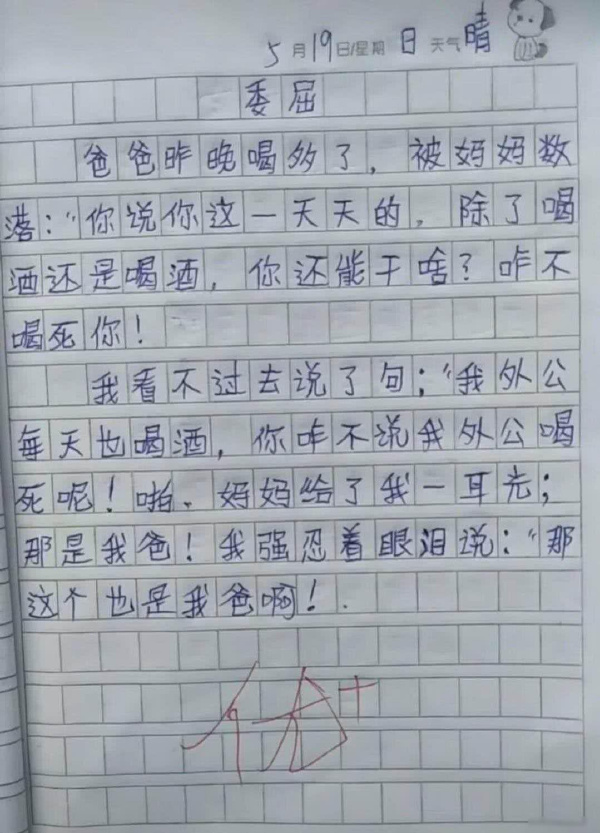 5月19日/星期日 天气晴
委屈
爸爸昨晚喝多了，被妈妈数
落："你说你这一天天的，除了喝
酒还是喝酒，你还能干啥？咋不
喝死你！
我看不过去说了句："我外公
每天也喝酒，你咋不说我外公喝
死呢！啪、妈妈给了我一耳光；
那是我爸！我强忍着眼泪说："那
这个也是我爸啊！.
优+